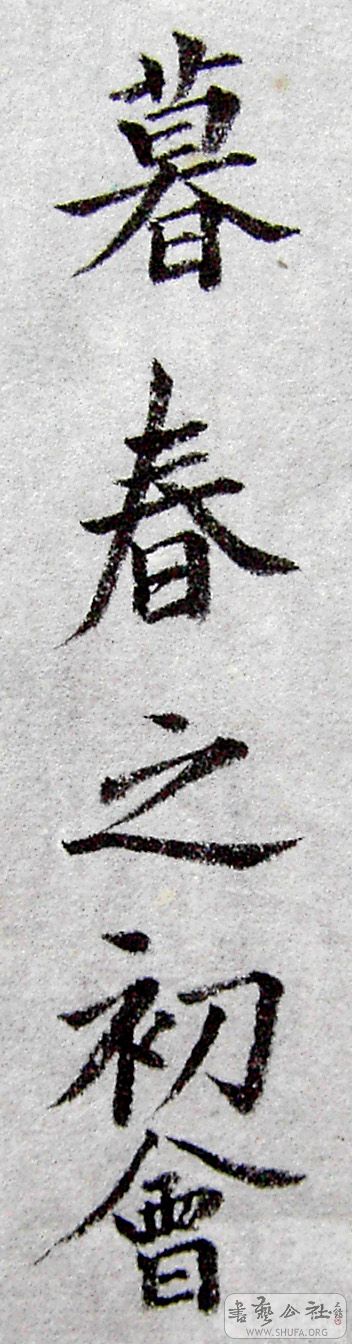 暮春之初會
書藝公社
WWW.SHUFA.ORG